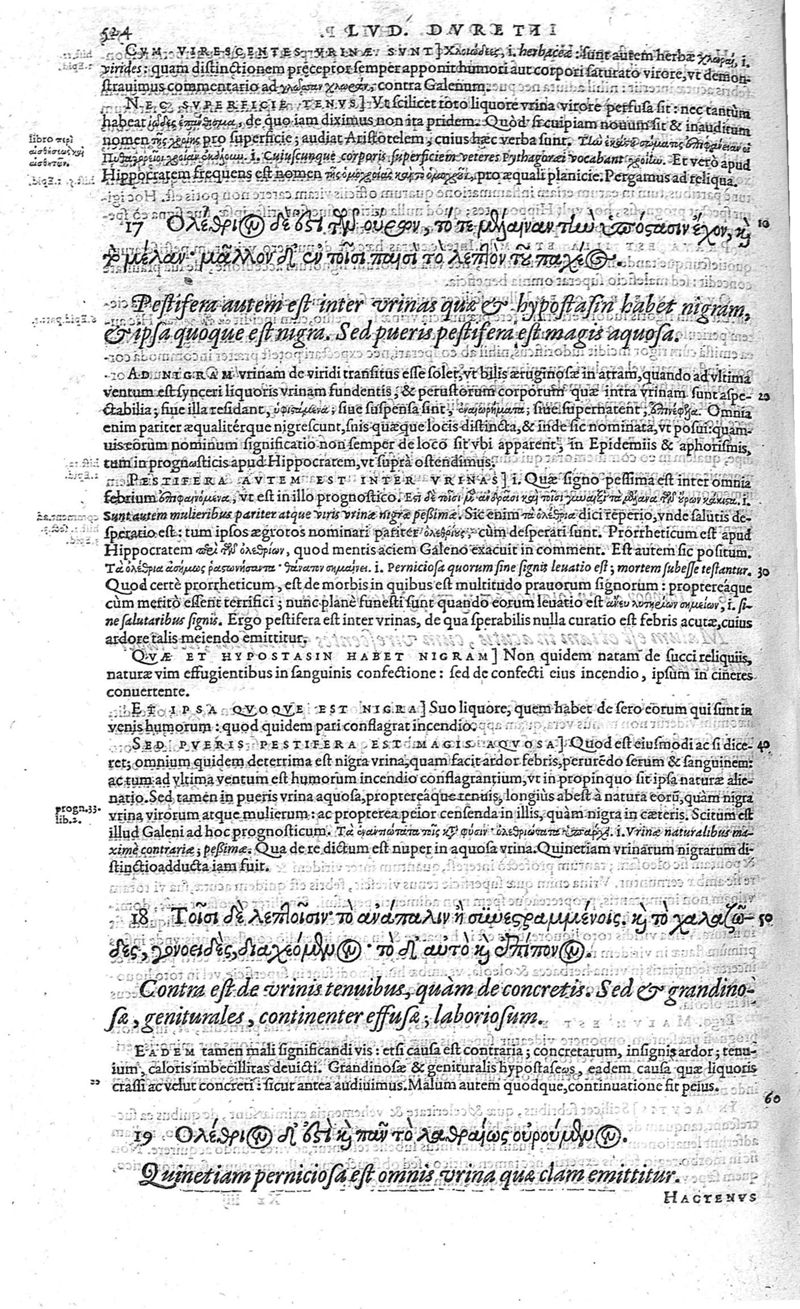 524 LVD. DVRETI
CVM VIRESCENTES VRINÆ SVNT] Χλοώδεες, i. herbaceæ: sunt autem herbæ χλωραί, i.
virides: quam distinctionem preceptor semper apponit humori aut corpori saturato virore, vt demon-
strauimus commentario ad γλῶσσαν χλωρήν, contra Galenum.
NEC SVPERFICIE TENVS] Vt scilicet toto liquore vrina virore perfusa sit: nec tantùm
habeat de quo iam diximus non ita pridem. Quòd si cuipiam nouum sit & inauditum
nomen τῆς χροιῆς pro superficie; audiat Aristotelem; cuius hæc verba sunt.
libro περὶ
αἰσθήσεως καὶ
αἰσθητῶν.
i. Cuiuscunque corporis superficiem veteres Pythagoræi vocabant χροιάν. Et verò apud
Hippocratem frequens est nomen pro æquali planicie. Pergamus ad reliqua.
17 Ὀλέθριον δέ ἐστι τῶν οὔρων, τό τε μέλαιναν τὴν ὑπόστασιν ἔχον, καὶ 10
τὸ μέλαν· μᾶλλον δ' ἐν τοῖσι παισὶ τὸ λεπτὸν τοῦ παχέος.
Pestifera autem est inter vrinas quæ & hypostasin habet nigram,
& ipsa quoque est nigra. Sed pueris pestifera est magis aquosa.
AD NIGRAM vrinam de viridi transitus esse solet, vt bilis æruginosæ in atram, quando ad vltima
ventum est synceri liquoris vrinam fundentis, & perustorum corporum quæ intra vrinam sunt aspe- 20
ctabilia; siue illa resident, ὑφιστάμενα; siue suspensa sint, ἐναιωρήματα; siue supernatent, Omnia
enim pariter æqualitérque nigrescunt, suis quæque locis distincta, & inde sic nominata, vt posui: quam-
uis eorum nominum significatio non semper de loco sit vbi apparent, in Epidemiis & aphorismis,
tum in prognosticis apud Hippocratem, vt suprà ostendimus.
PESTIFERA AVTEM EST INTER VRINAS] i. Quæ signo pessima est inter omnia
febrium ἐπιφαινόμενα, vt est in illo prognostico. i.
Sunt autem mulieribus pariter atque viris vrinæ nigræ pessimæ. Sic enim τὰ ὀλέθρια dici reperio, vnde salutis de-
speratio est: tum ipsos ægrotos nominari pariter ὀλεθρίους, cùm desperati sunt. Prorrheticum est apud
Hippocratem περὶ τῶν ὀλεθρίων, quod mentis aciem Galeno exacuit in comment. Est autem sic positum.
Τὰ ὀλέθρια ἀσήμως ῥᾳστωνήσαντα θάνατον σημαίνει. i. Perniciosa quorum sine signis leuatio est; mortem subesse testantur. 30
Quod certè prorrheticum, est de morbis in quibus est multitudo prauorum signorum: proptereáque
cùm meritò essent terrifici; nunc planè funesti sunt quando eorum leuatio est ἄνευ λυτηρίων σημείων, i. si-
ne salutaribus signis. Ergo pestifera est inter vrinas, de qua sperabilis nulla curatio est febris acutæ, cuius
ardore talis meiendo emittitur.
QVÆ ET HYPOSTASIN HABET NIGRAM] Non quidem natam de succi reliquiis,
naturæ vim effugientibus in sanguinis confectione: sed de confecti eius incendio, ipsum in cineres
conuertente.
ET IPSA QVOQVE EST NIGRA] Suo liquore, quem habet de sero eorum qui sunt in
venis humorum: quod quidem pari conflagrat incendio.
SED PVERIS PESTIFERA EST MAGIS AQVOSA] Quod est eiusmodi ac si dice- 40
ret; omnium quidem deterrima est nigra vrina, quam facit ardor febris, perurẽdo serum & sanguinem:
ac tum ad vltima ventum est humorum incendio conflagrantium, vt in propinquo sit ipsa naturæ alie-
natio. Sed tamen in pueris vrina aquosa, proptereáque tenuis, longiùs abest à natura eorũ, quàm nigra
progn. 33.
lib. 2.
vrina virorum atque mulierum: ac propterea peior censenda in illis, quàm nigra in cæteris. Scitum est
illud Galeni ad hoc prognosticum. Τὰ ἐναντιώτατα τοῖς κατὰ φύσιν ὀλεθριώτατα ὑπάρχει. i. Vrinæ naturalibus ma-
ximè contrariæ; pessimæ. Qua de re dictum est nuper in aquosa vrina. Quinetiam vrinarum nigrarum di-
stinctio adducta iam fuit.
18 Τοῖσι δὲ λεπτοῖσιν τὸ ἀνάπαλιν ἢ συνεστραμμένοις. καὶ τὸ χαλαζῶ- 50
δες, γονοειδές, διαχεόμενον· τὸ δ' αὐτὸ καὶ ἐπίπονον.
Contra est de vrinis tenuibus, quàm de concretis. Sed & grandino-
sæ, geniturales, continenter effusæ; laboriosum.
EADEM tamen mali significandi vis: etsi causa est contraria; concretarum, insignis ardor; tenu-
ium, caloris imbecillitas deuicti. Grandinosæ & genituralis hypostaseως, eadem causa quæ liquoris
crassi ac velut concreti: sicut antea audiuimus. Malum autem quodque, continuatione fit peius.
60
19 Ὀλέθριον δ' ἐστὶ καὶ πᾶν τὸ λαθραίως οὐρούμενον.
Quinetiam perniciosa est omnis vrina quæ clam emittitur.
HACTENVS